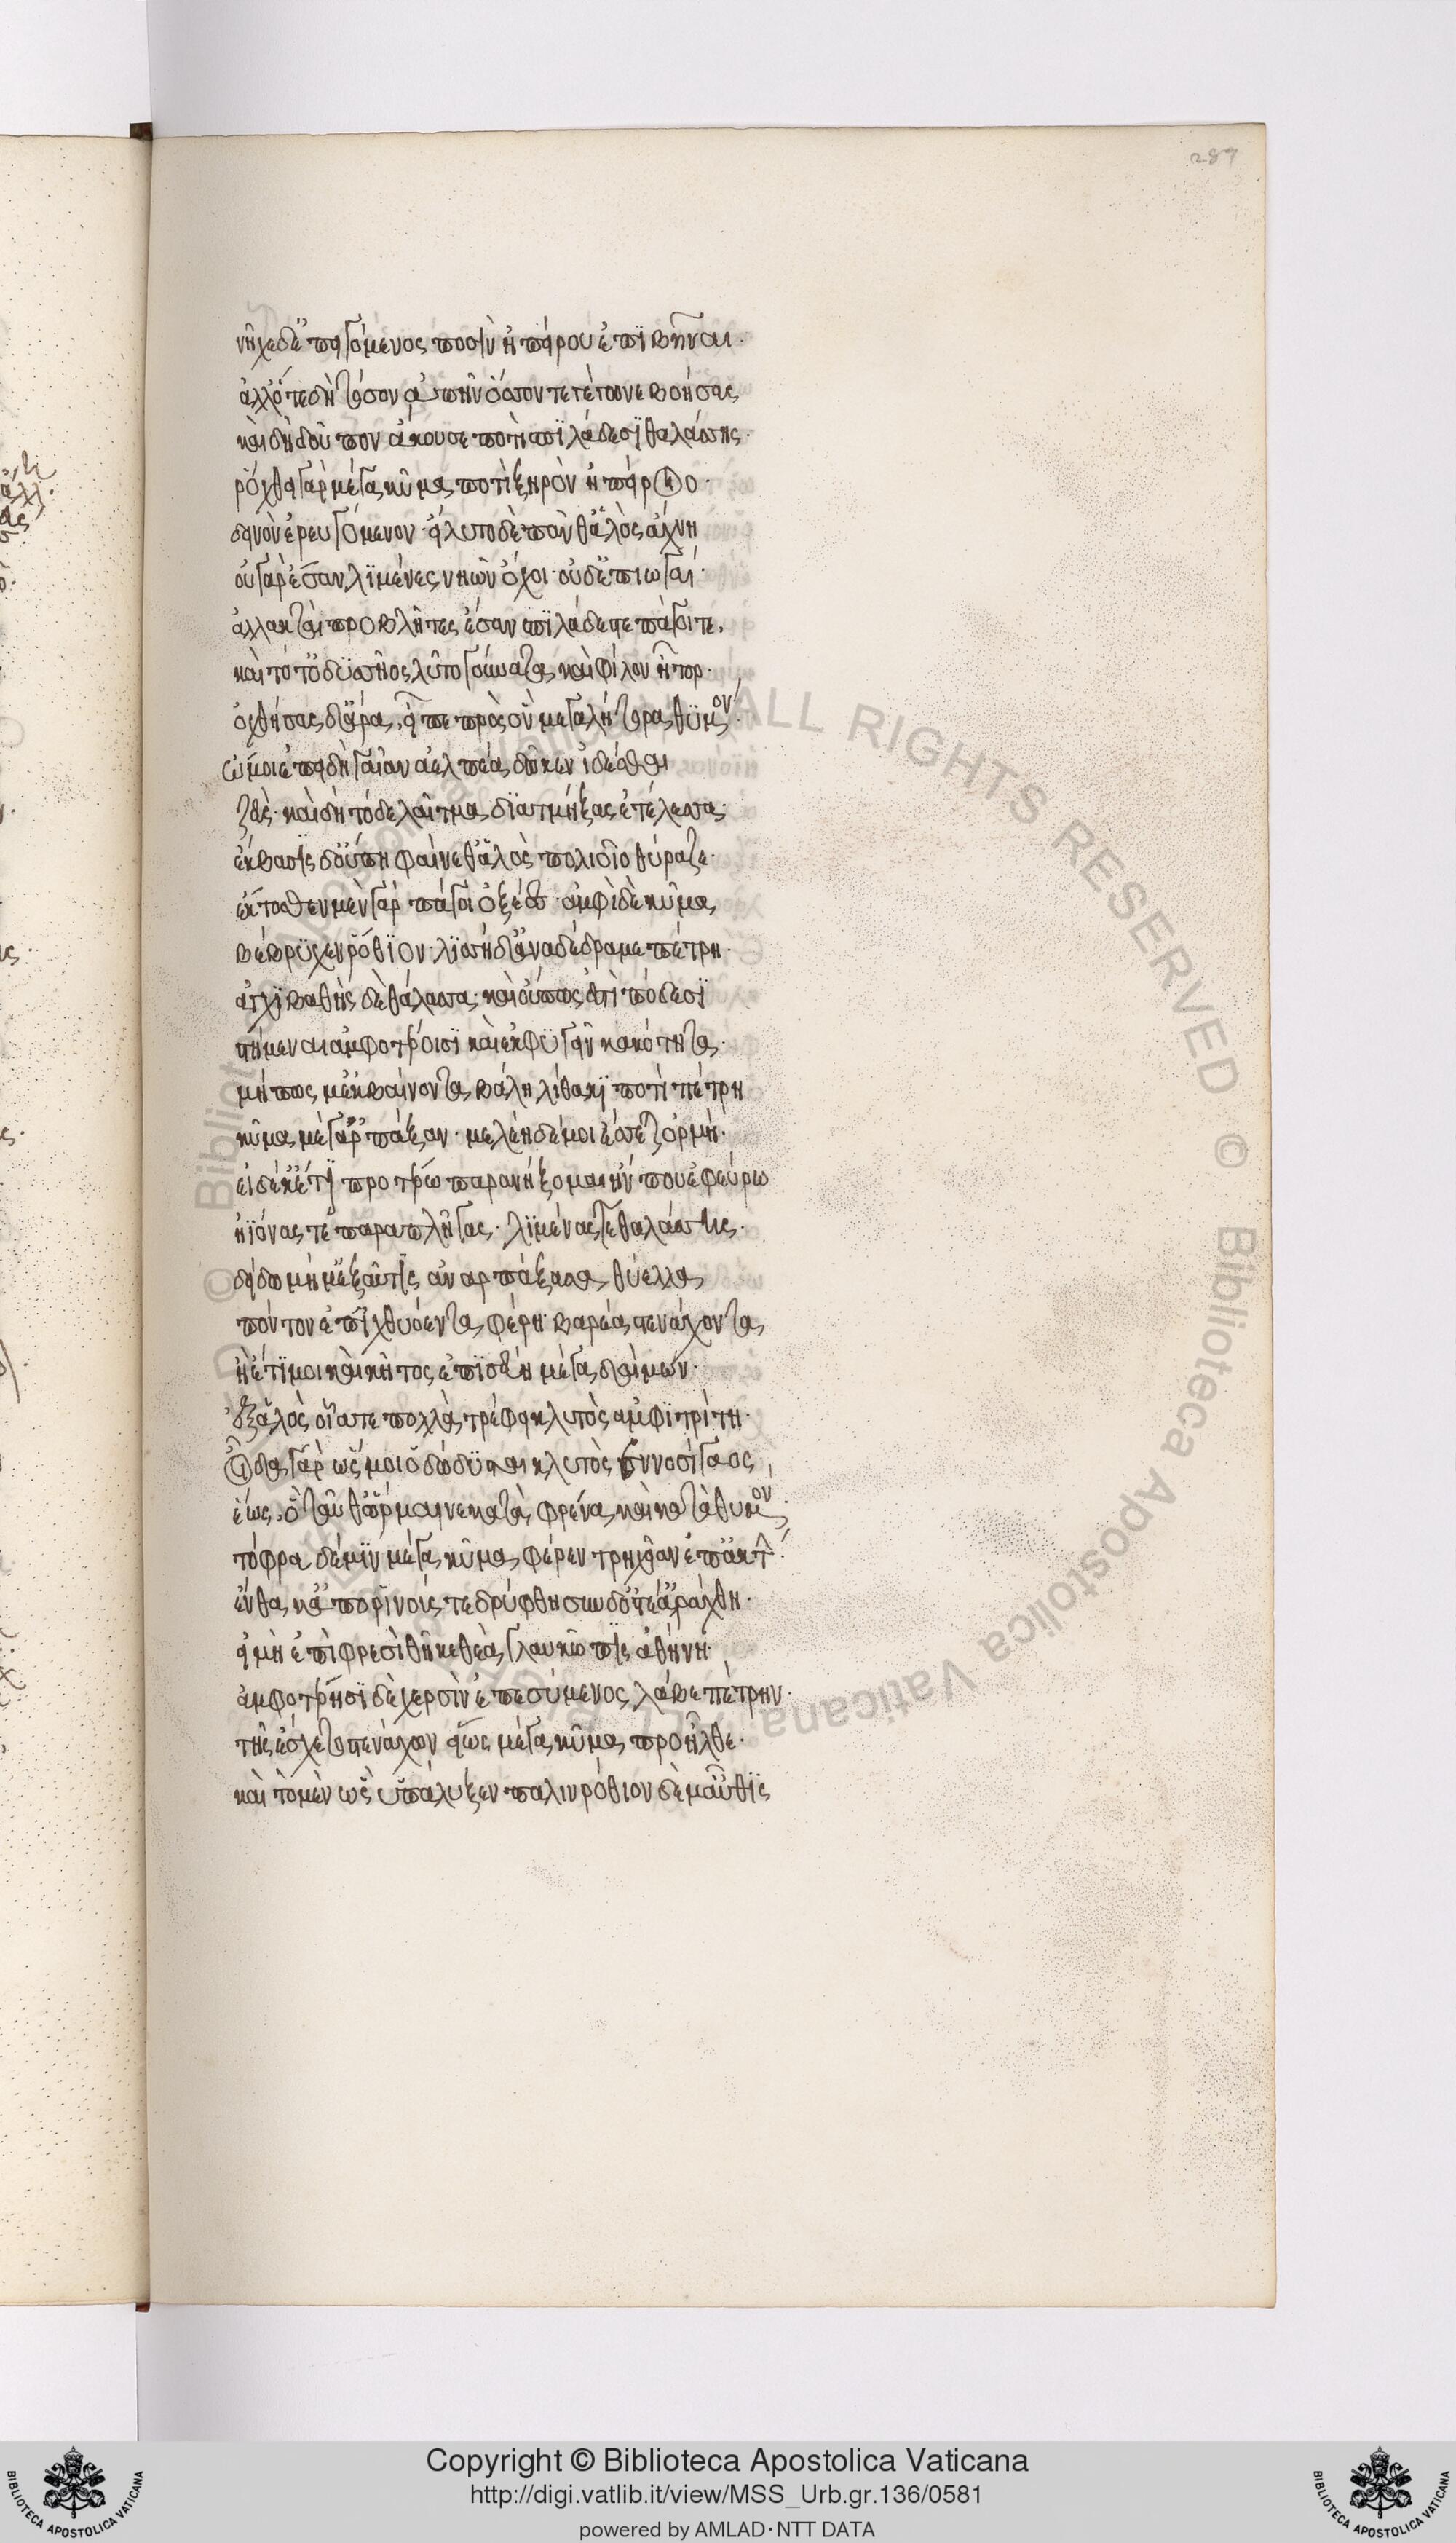 287
νῆχε δ' ἐπειγόμενος ποσὶν ἠπείρου ἐπιβῆναι·
ἀλλ' ὅτε δὴ τόσσον ἀπῆν ὅσσον τε γέγωνε βοήσας
καὶ δὴ δοῦπον ἄκουσε ποτὶ σπιλάδεσϊ θαλάσσης·
ῥόχθει γὰρ μέγα κῦμα ποτὶ ξηρὸν ἠπείροιο·
δεινὸν ἐρευγόμενον· εἴλυτο δὲ πάνθ' ἁλὸς ἄχνη
οὐ γὰρ ἔσαν λϊμένες νηῶν ὄχοι· οὐδ' ἐπιωγαί·
ἀλλ' ἀκταὶ προβλῆτες ἔσαν σπϊλάδες τε πάγοι τε.
καὶ τότ' ὀδυσσῆος λύτο γούνατα καὶ φίλον ἦτορ·
ὀχθήσας δ' ἄρα εἶπε πρὸς ὃν μεγαλήτορα θυμὸν·
ὤ μοι ἐπειδὴ γαῖαν ἀελπέα δῶκεν ἰδέσθαι
ζεὺς· καὶ δὴ τόδε λαῖτμα διατμήξας ἐτέλεσσα·
ἔκβασις δ' οὔπη φαίνεθ' ἁλὸς πολιοῖο θύραζε·
ἔκτοσθεν μὲν γὰρ πάγοι ὀξέες· ἀμφὶ δὲ κῦμα
βέβρϋχεν ῥόθϊον· λϊσσὴ δ' ἀναδέδρομε πέτρη·
ἀγχϊβαθὴς δὲ θάλασσα· καὶ οὔπως ἐστὶ πόδεσϊ
στήμεναι ἀμφοτέροισϊ καὶ ἐκφϋγεῖν κακότητα·
μή πως μ' ἐκβαίνοντα βάλη λίθακϊ ποτὶ πέτρη
κῦμα μέγ' ἁρπάξαν· μελέη δέ μοι ἔσσεται ὁρμή·
εἰ δέ κ' ἔτϊ προτέρω παρανήξομαι ἤν που ἐφεύρω
ἠϊόνας τε παραπλῆγας· λϊμένας τε θαλάσσης·
δείδω μή μ' ἐξαῦτις ἀναρπάξασα θύελλα
πόντον ἐπ' ἰχθυόεντα φέρη βαρέα στενάχοντα
ἠὲ τί μοι καὶ κῆτος ἐπϊσσεύη μέγα δαίμων·
ἐξ ἁλὸς οἷά τε πολλὰ τρέφει κλυτὸς ἀμφϊτρίτη·
οἶδα γὰρ ὥς μοι ὀδώδυσται κλυτὸς ἐννοσίγαιος
ἕως ὃ ταῦθ' ὥρμαινε κατὰ φρένα καὶ κατὰ θυμὸν·
τόφρα δέ μιν μέγα κῦμα φέρεν τρηχεῖαν ἐπ' ἀκτ·
ἔνθα κ' ἀπὸ ῥϊνοὺς τε δρύφθη σὺν δ' ὀστέ' ἀράχθη·
εἰ μὴ ἐπὶ φρεσὶ θῆκε θεὰ γλαυκῶπις ἀθήνη·
ἀμφοτέρησϊ δὲ χερσὶν ἐπεσσύμενος λάβε πέτρην·
τῆς ἔχετο στενάχων εἵως μέγα κῦμα προῆλθε·
καὶ τὸ μὲν ὣς ὑπάλυξεν παλινρόθιον δὲ μ' αὖθϊς
Copyright © Biblioteca Apostolica Vaticana
http://digi.vatlib.it/view/MSS_Urb.gr.136/0581
powered by AMLAD·NTT DATA